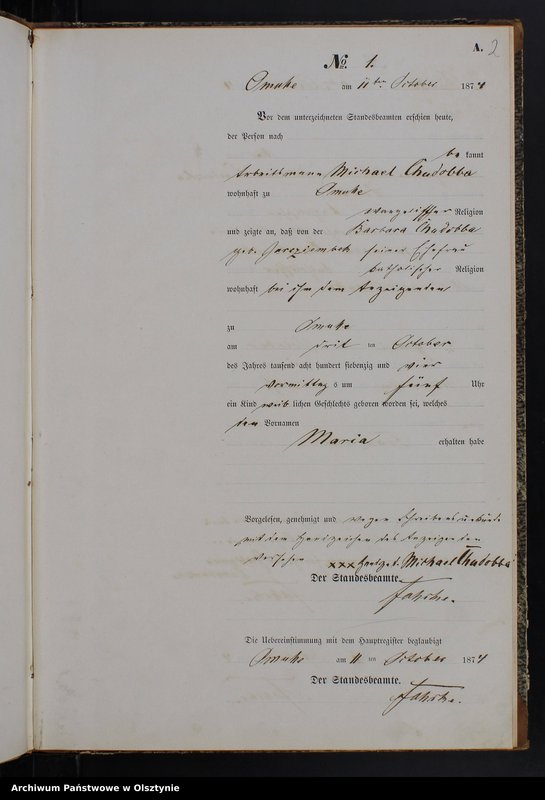 A. 2
№ 1.
Omule am 11ten October 1874
Vor dem unterzeichneten Standesbeamten erschien heute,
der Person nach
be kannt
Arbeitsmann Michael Chudobba
wohnhaft zu Omule
evangelischer Religion
und zeigte an, daß von der Barbara Chudobba
geb. seiner Ehefrau
katholischer Religion
wohnhaft bei ihm dem Anzeigenden
zu Omule
am drit ten October
des Jahres tausend acht hundert siebenzig und vier
Vormittag s um fünf Uhr
ein Kind weib lichen Geschlechts geboren worden sei, welches
den Vornamen
Maria erhalten habe
Vorgelesen, genehmigt und wegen Schreibensunkunde
mit dem Handzeichen des Anzeigenden
versehen xxx Handz. d. Michael Chudobba
Der Standesbeamte.
Die Uebereinstimmung mit dem Hauptregister beglaubigt
Omule am 11 ten October 1874
Der Standesbeamte.
Archiwum Państwowe w Olsztynie